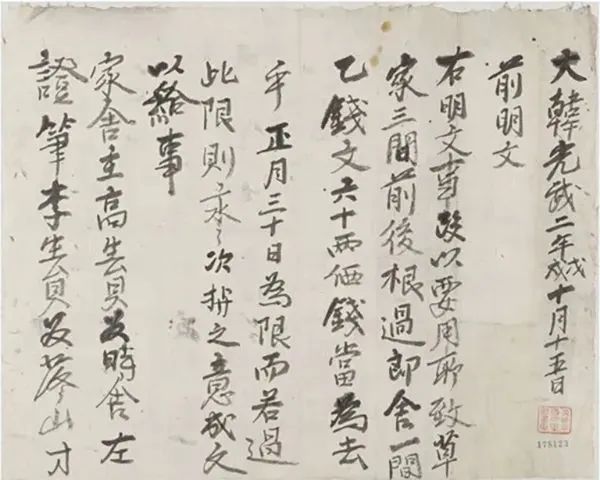 大韓光武二年戊戌十月十五日
前明文
右明文事段以要用所致草
家三間前後根過即舍一間
乙錢文六十兩価錢當為去
乎正月三十日為限而若過
此限則永々次持之意成文
以給事
家舍主高生員時舍左
證筆李生員
175123